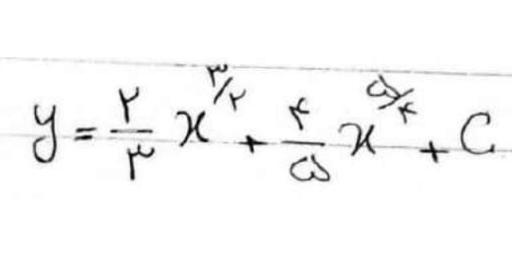 y = ۲/۳ x^۳/۲ + ۴/۵ x^۵/۴ + C